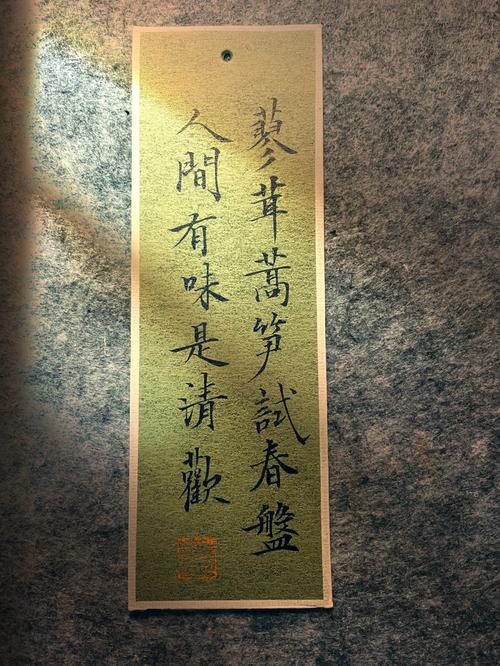 蓼茸蒿笋試春盤
人間有味是清歡